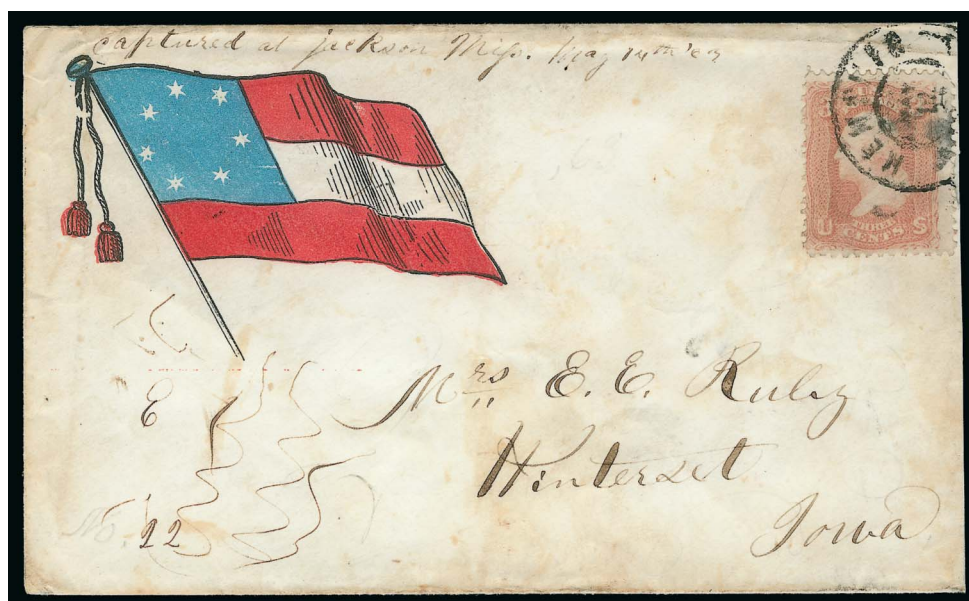 captured at jackson Miss. May 14th '63
MEMPHIS
U S
CENTS
Mrs E. E. Ruby
Winterset
Iowa
E
No. 22